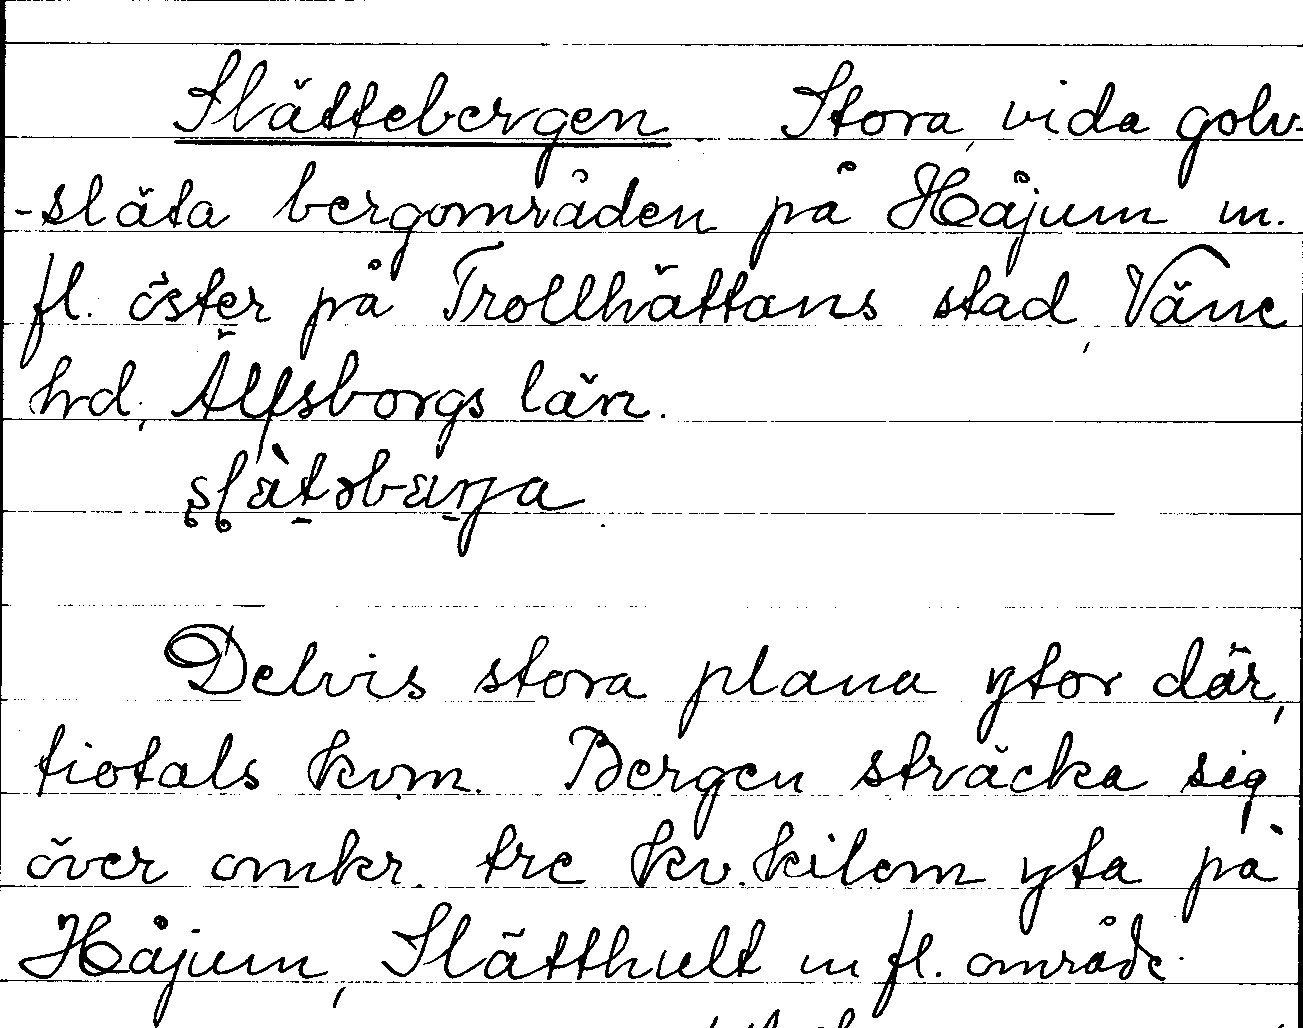 Slättebergen. Stora, vida golv-
-släta bergområden på Håjum m.
fl. öster på Trollhättans stad, Väne
hrd, Älfsborgs län.
Delvis stora plana ytor där,
tiotals kvm. Bergen sträcka sig
över omkr. tre kv.kilom yta på
Håjum, Slätthult m fl. område.